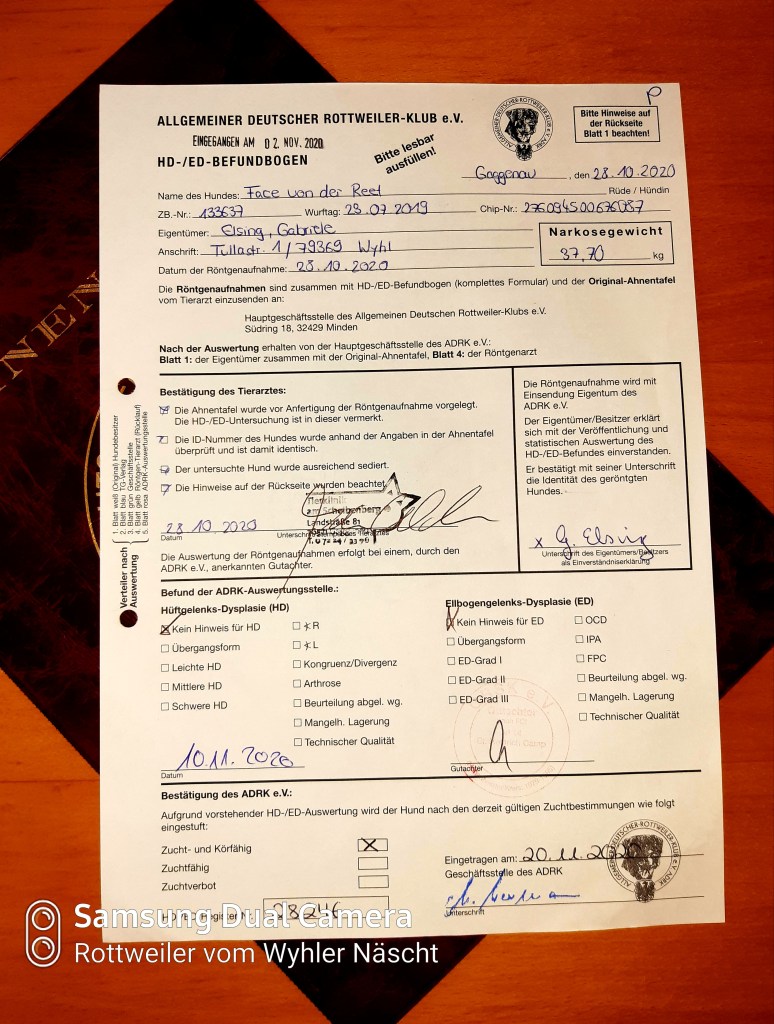 P
ALLGEMEINER DEUTSCHER ROTTWEILER-KLUB e.V.
EINGEGANGEN AM 02. NOV. 2020
HD-/ED-BEFUNDBOGEN
Bitte lesbar
ausfüllen!
ALLGEMEINER DEUTSCHER ROTTWEILER-KLUB
Bitte Hinweise auf
der Rückseite
Blatt 1 beachten!
Gaggenau, den 28.10.2020
Name des Hundes: Face von der Reet Rüde / Hündin
ZB.-Nr.: 133637 Wurftag: 23.07.2019 Chip-Nr.: 276094500676087
Eigentümer: Elsing, Gabriele
Anschrift: Tullastr. 1 / 79369 Wyhl
Datum der Röntgenaufnahme: 28.10.2020
Narkosegewicht
37,70 kg
Die Röntgenaufnahmen sind zusammen mit HD-/ED-Befundbogen (komplettes Formular) und der Original-Ahnentafel
vom Tierarzt einzusenden an:
Hauptgeschäftsstelle des Allgemeinen Deutschen Rottweiler-Klubs e.V.
Südring 18, 32429 Minden
Nach der Auswertung erhalten von der Hauptgeschäftsstelle des ADRK e.V.:
Blatt 1: der Eigentümer zusammen mit der Original-Ahnentafel, Blatt 4: der Röntgenarzt
Bestätigung des Tierarztes:
Die Ahnentafel wurde vor Anfertigung der Röntgenaufnahme vorgelegt.
Die HD-/ED-Untersuchung ist in dieser vermerkt.
Die ID-Nummer des Hundes wurde anhand der Angaben in der Ahnentafel
überprüft und ist damit identisch.
Der untersuchte Hund wurde ausreichend sediert.
Die Hinweise auf der Rückseite wurden beachtet.
Tierklinik
am Scheibenberg
Landstraße 81
28.10.2020
Datum
Die Auswertung der Röntgenaufnahmen erfolgt bei einem, durch den
ADRK e.V., anerkannten Gutachter.
Die Röntgenaufnahme wird mit
Einsendung Eigentum des
ADRK e.V.
Der Eigentümer/Besitzer erklärt
sich mit der Veröffentlichung und
statistischen Auswertung des
HD-/ED-Befundes einverstanden.
Er bestätigt mit seiner Unterschrift
die Identität des geröntgten
Hundes.
x G. Elsing
Unterschrift des Eigentümers/Besitzers
als Einverständniserklärung
Verteiler nach
Auswertung
1. Blatt weiß (Original) Hundebesitzer
2. Blatt blau TG-Verlag
3. Blatt grün Geschäftsstelle
4. Blatt gelb Röntgen-Tierarzt (Rücklauf)
5. Blatt rosa ADRK-Auswertungsstelle
Befund der ADRK-Auswertungsstelle.:
Hüftgelenks-Dysplasie (HD)
Kein Hinweis für HD
Übergangsform
Leichte HD
Mittlere HD
Schwere HD
∢ R
∢ L
Kongruenz/Divergenz
Arthrose
Beurteilung abgel. wg.
Mangelh. Lagerung
Technischer Qualität
10.11.2020
Datum
Ellbogengelenks-Dysplasie (ED)
Kein Hinweis für ED
Übergangsform
ED-Grad I
ED-Grad II
ED-Grad III
OCD
IPA
FPC
Beurteilung abgel. wg.
Mangelh. Lagerung
Technischer Qualität
Gutachter
Bestätigung des ADRK e.V.:
Aufgrund vorstehender HD-/ED-Auswertung wird der Hund nach den derzeit gültigen Zuchtbestimmungen wie folgt
eingestuft:
Zucht- und Körfähig
Zuchtfähig
Zuchtverbot
28246
Eingetragen am: 20.11.2020
Geschäftsstelle des ADRK
Unterschrift
ALLGEMEINER DEUTSCHER-ROTTWEILER-KLUB e.V. ADRK
Samsung Dual Camera
Rottweiler vom Wyhler Näscht